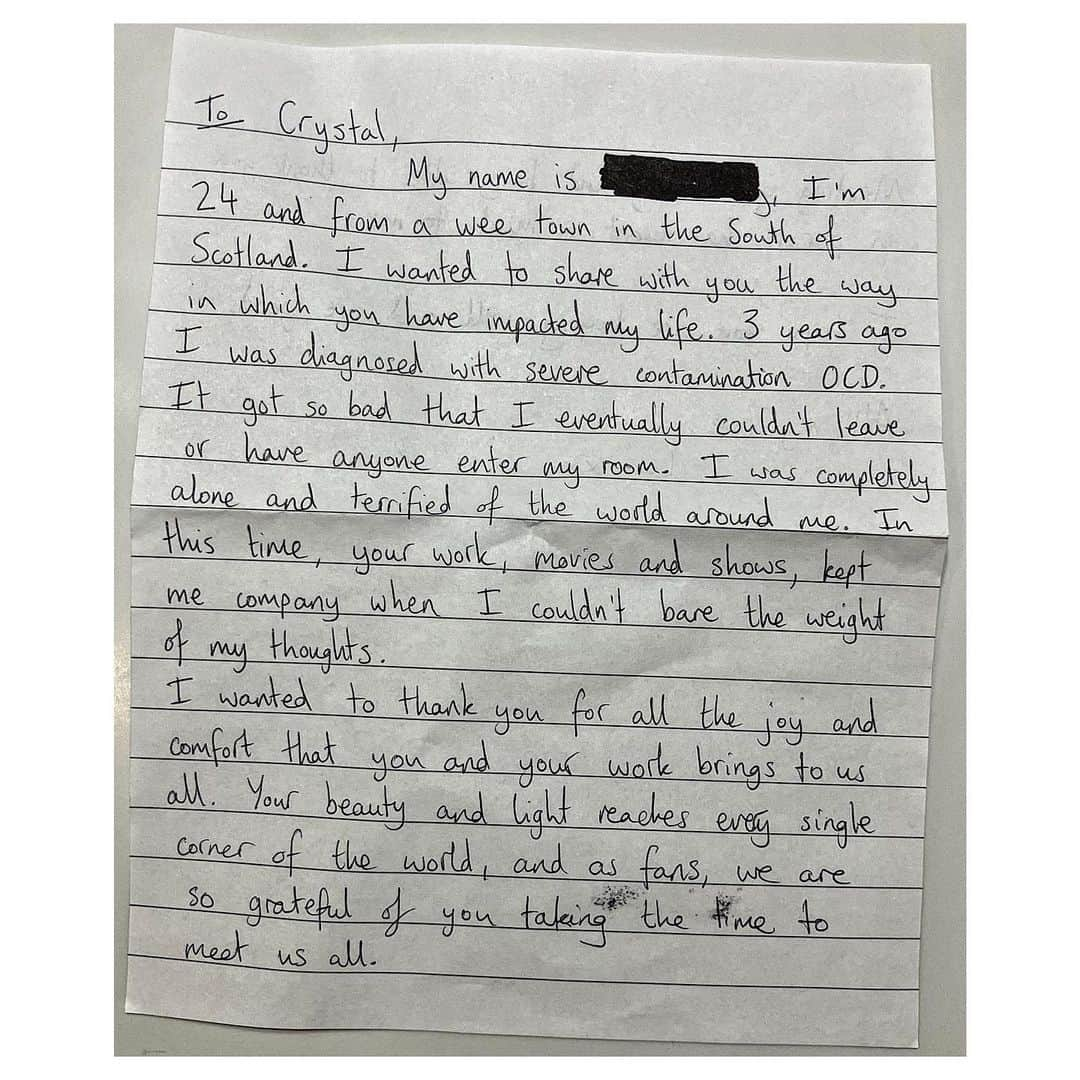 To Crystal,
My name is , I'm
24 and from a wee town in the South of
Scotland. I wanted to share with you the way
in which you have impacted my life. 3 years ago
I was diagnosed with severe contamination OCD.
It got so bad that I eventually couldn't leave
or have anyone enter my room. I was completely
alone and terrified of the world around me. In
this time, your work, movies and shows, kept
me company when I couldn't bare the weight
of my thoughts.
I wanted to thank you for all the joy and
comfort that you and your work brings to us
all. Your beauty and light reaches every single
corner of the world, and as fans, we are
so grateful of you taking the time to
meet us all.